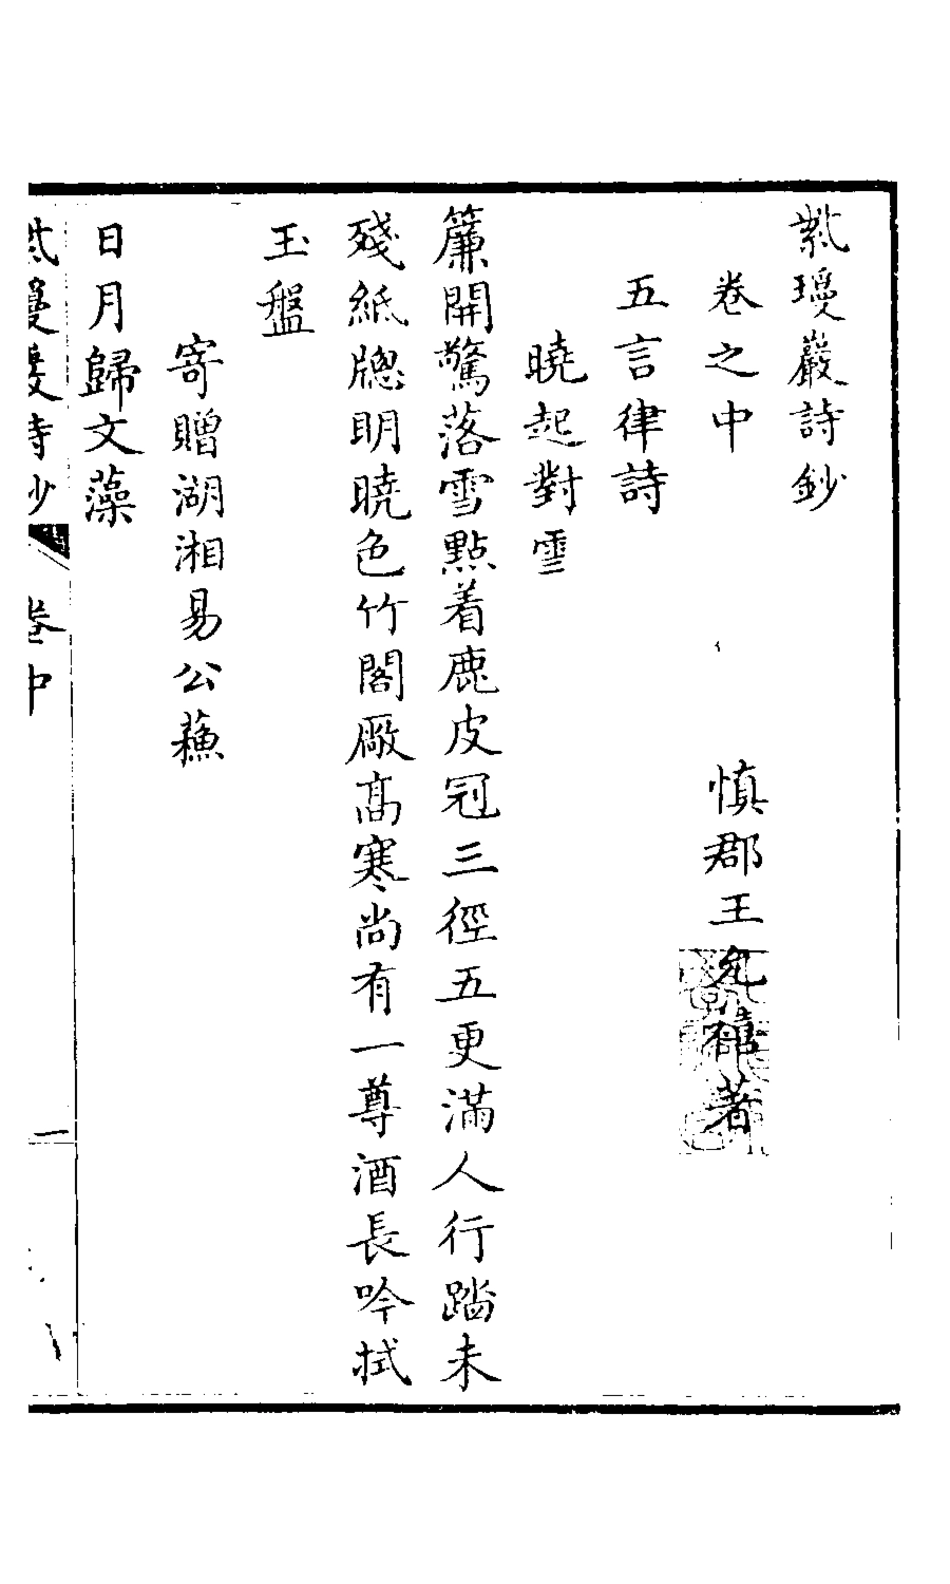 紫瓊巖詩鈔
卷之中
慎郡王允禧著
五言律詩
曉起對雪
簾開驚落雪點着鹿皮冠三徑五更滿人行踏未
殘紙牕明曉色竹閣厰高寒尚有一尊酒長吟拭
玉盤
寄贈湖湘易公蘓
日月歸文藻
紫瓊巖詩鈔 卷中 一